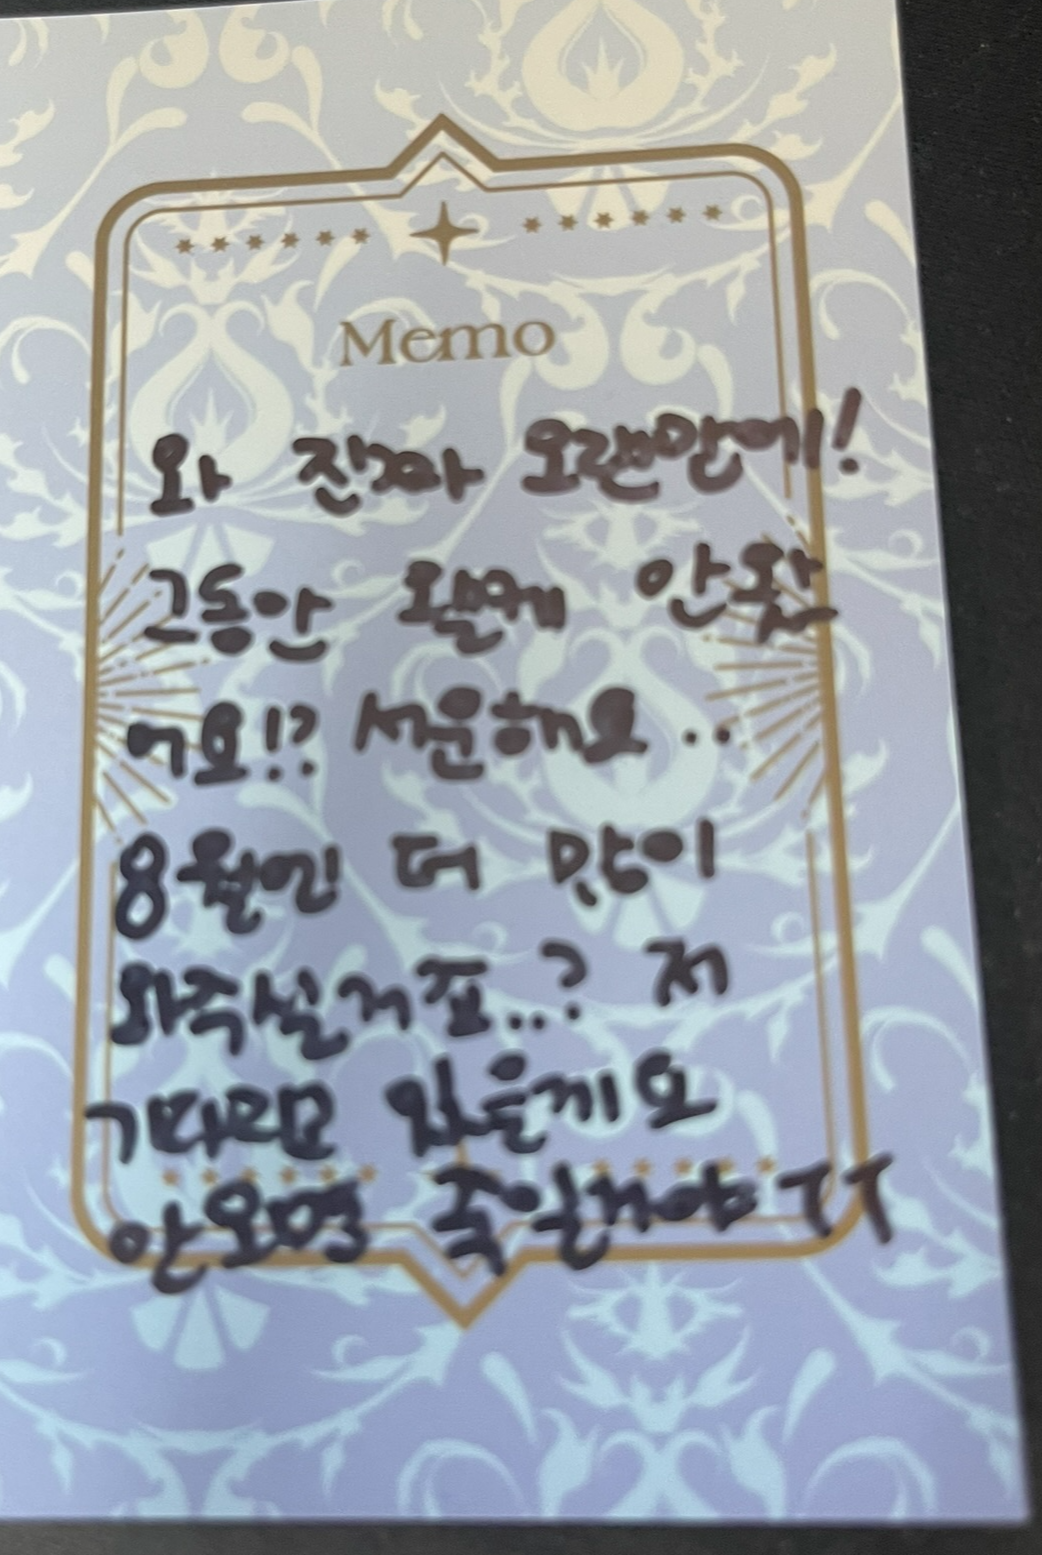 Memo
와 진짜 오랜만에!
그동안 왤케 안왔
어요!? 서운해요..
8월엔 더 많이
와주실거죠..? 저
기다리고 있을게요
안오면 죽일거야 ㅜㅜ